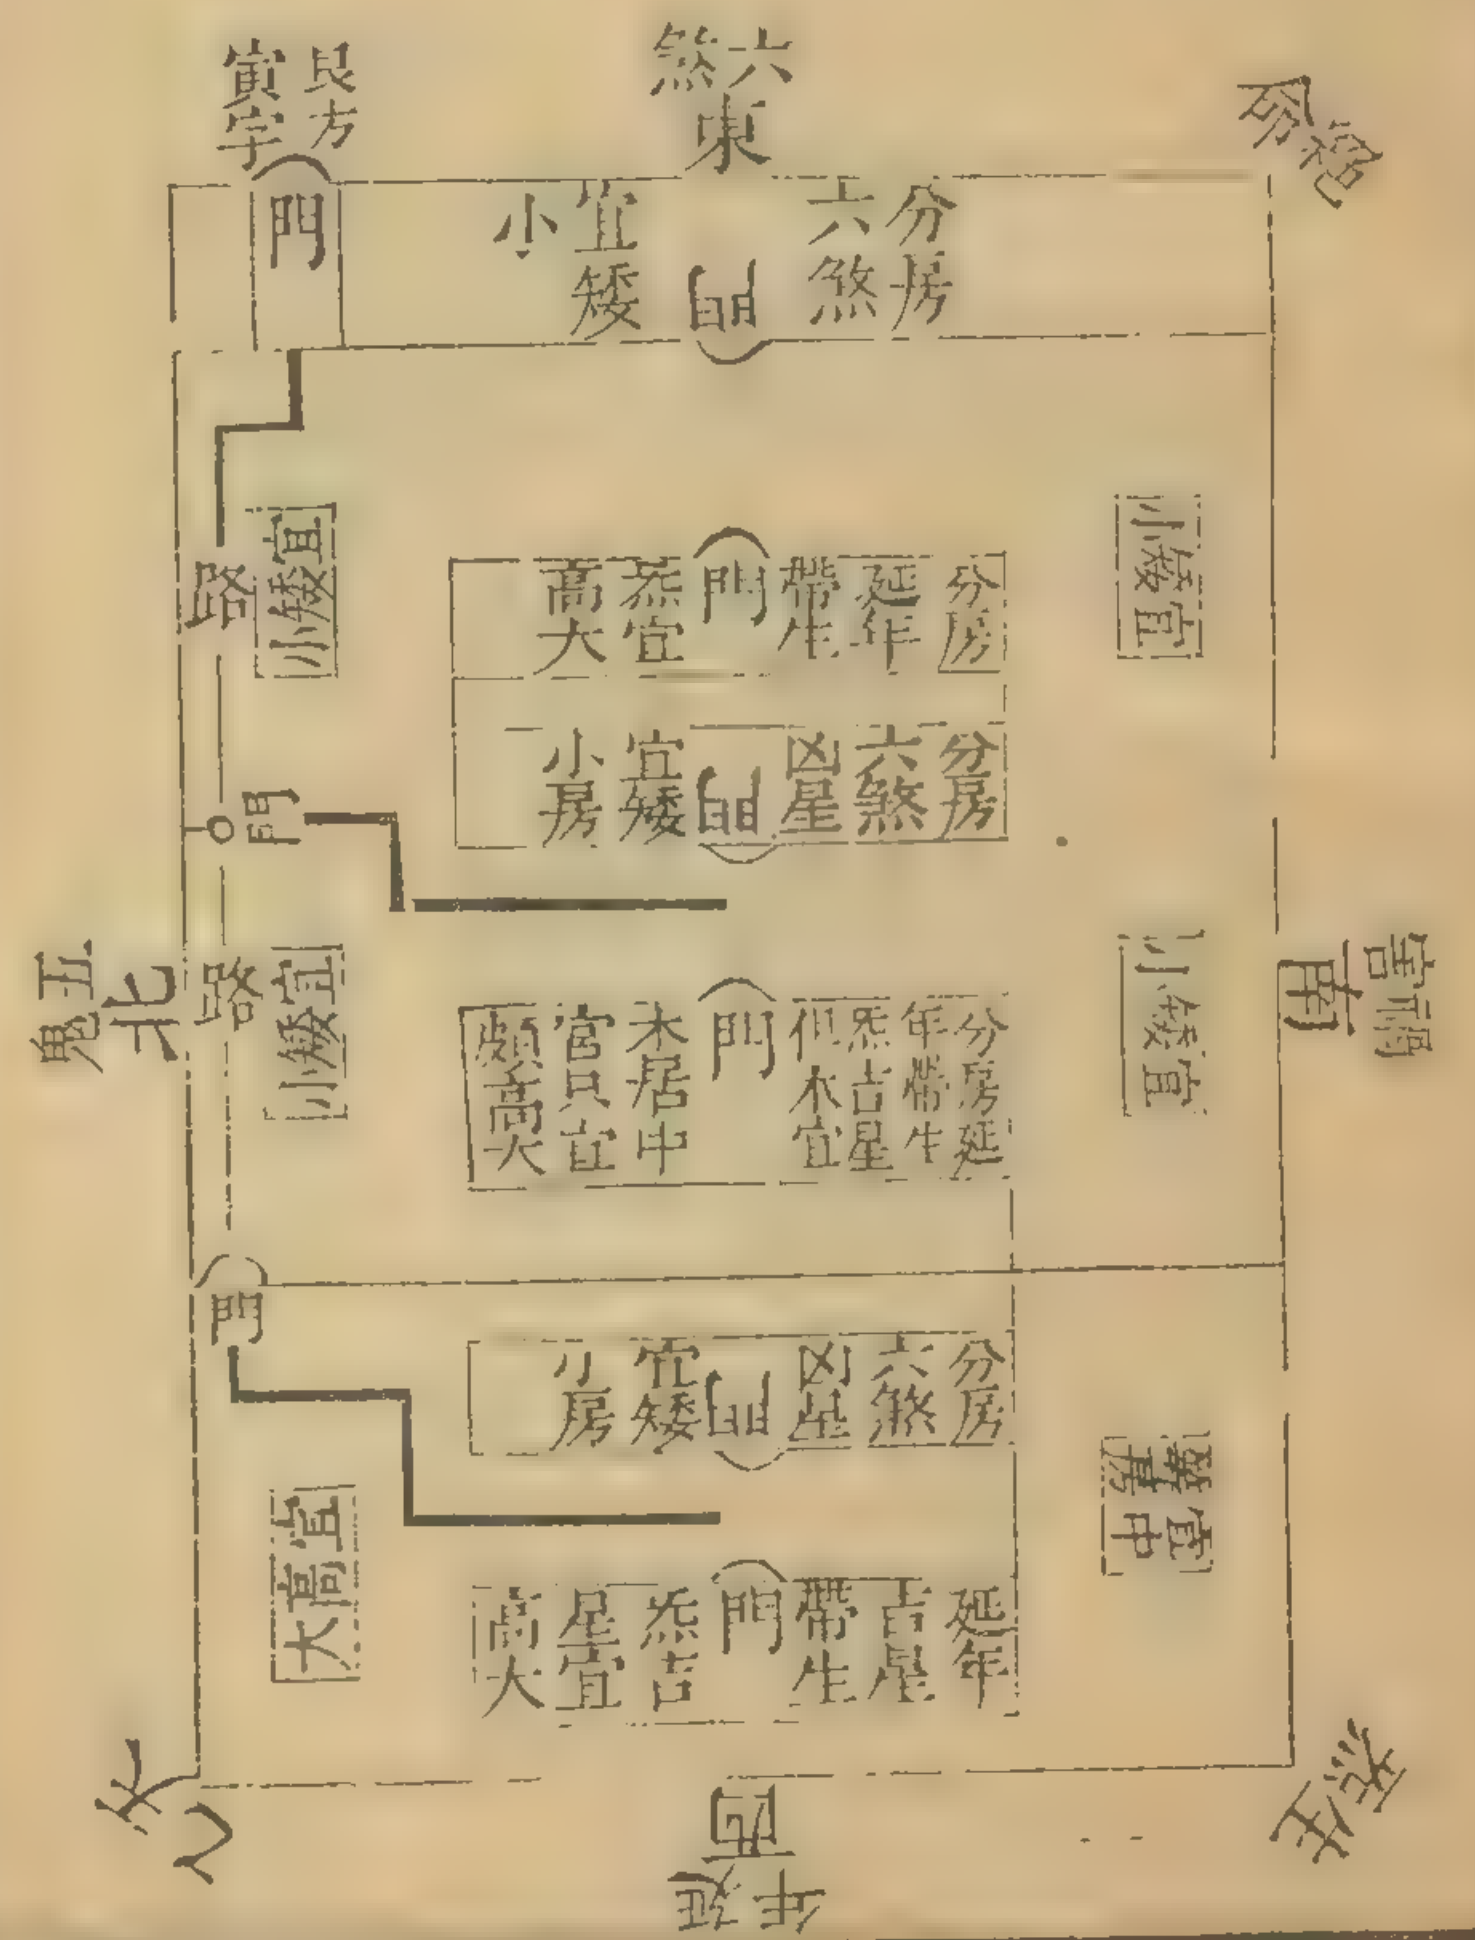 艮方
寅字
六煞
東
絕命
門
分房
六煞
門
宜矮
小
路
宜矮小
宜矮小
分房
延年
帶生
門
炁宜
高大
分房
六煞
凶星
門
宜矮
小房
門
五鬼
北
路
宜矮小
宜矮小
南
禍害
分房延
年帶生
炁吉星
但木宜
門
木居中
宮只宜
頗高大
門
分房
六煞
凶星
門
宜矮
小房
宜高大
宜中
延年
吉星
帶生
門
炁吉
星宜
高大
生炁
西
延年